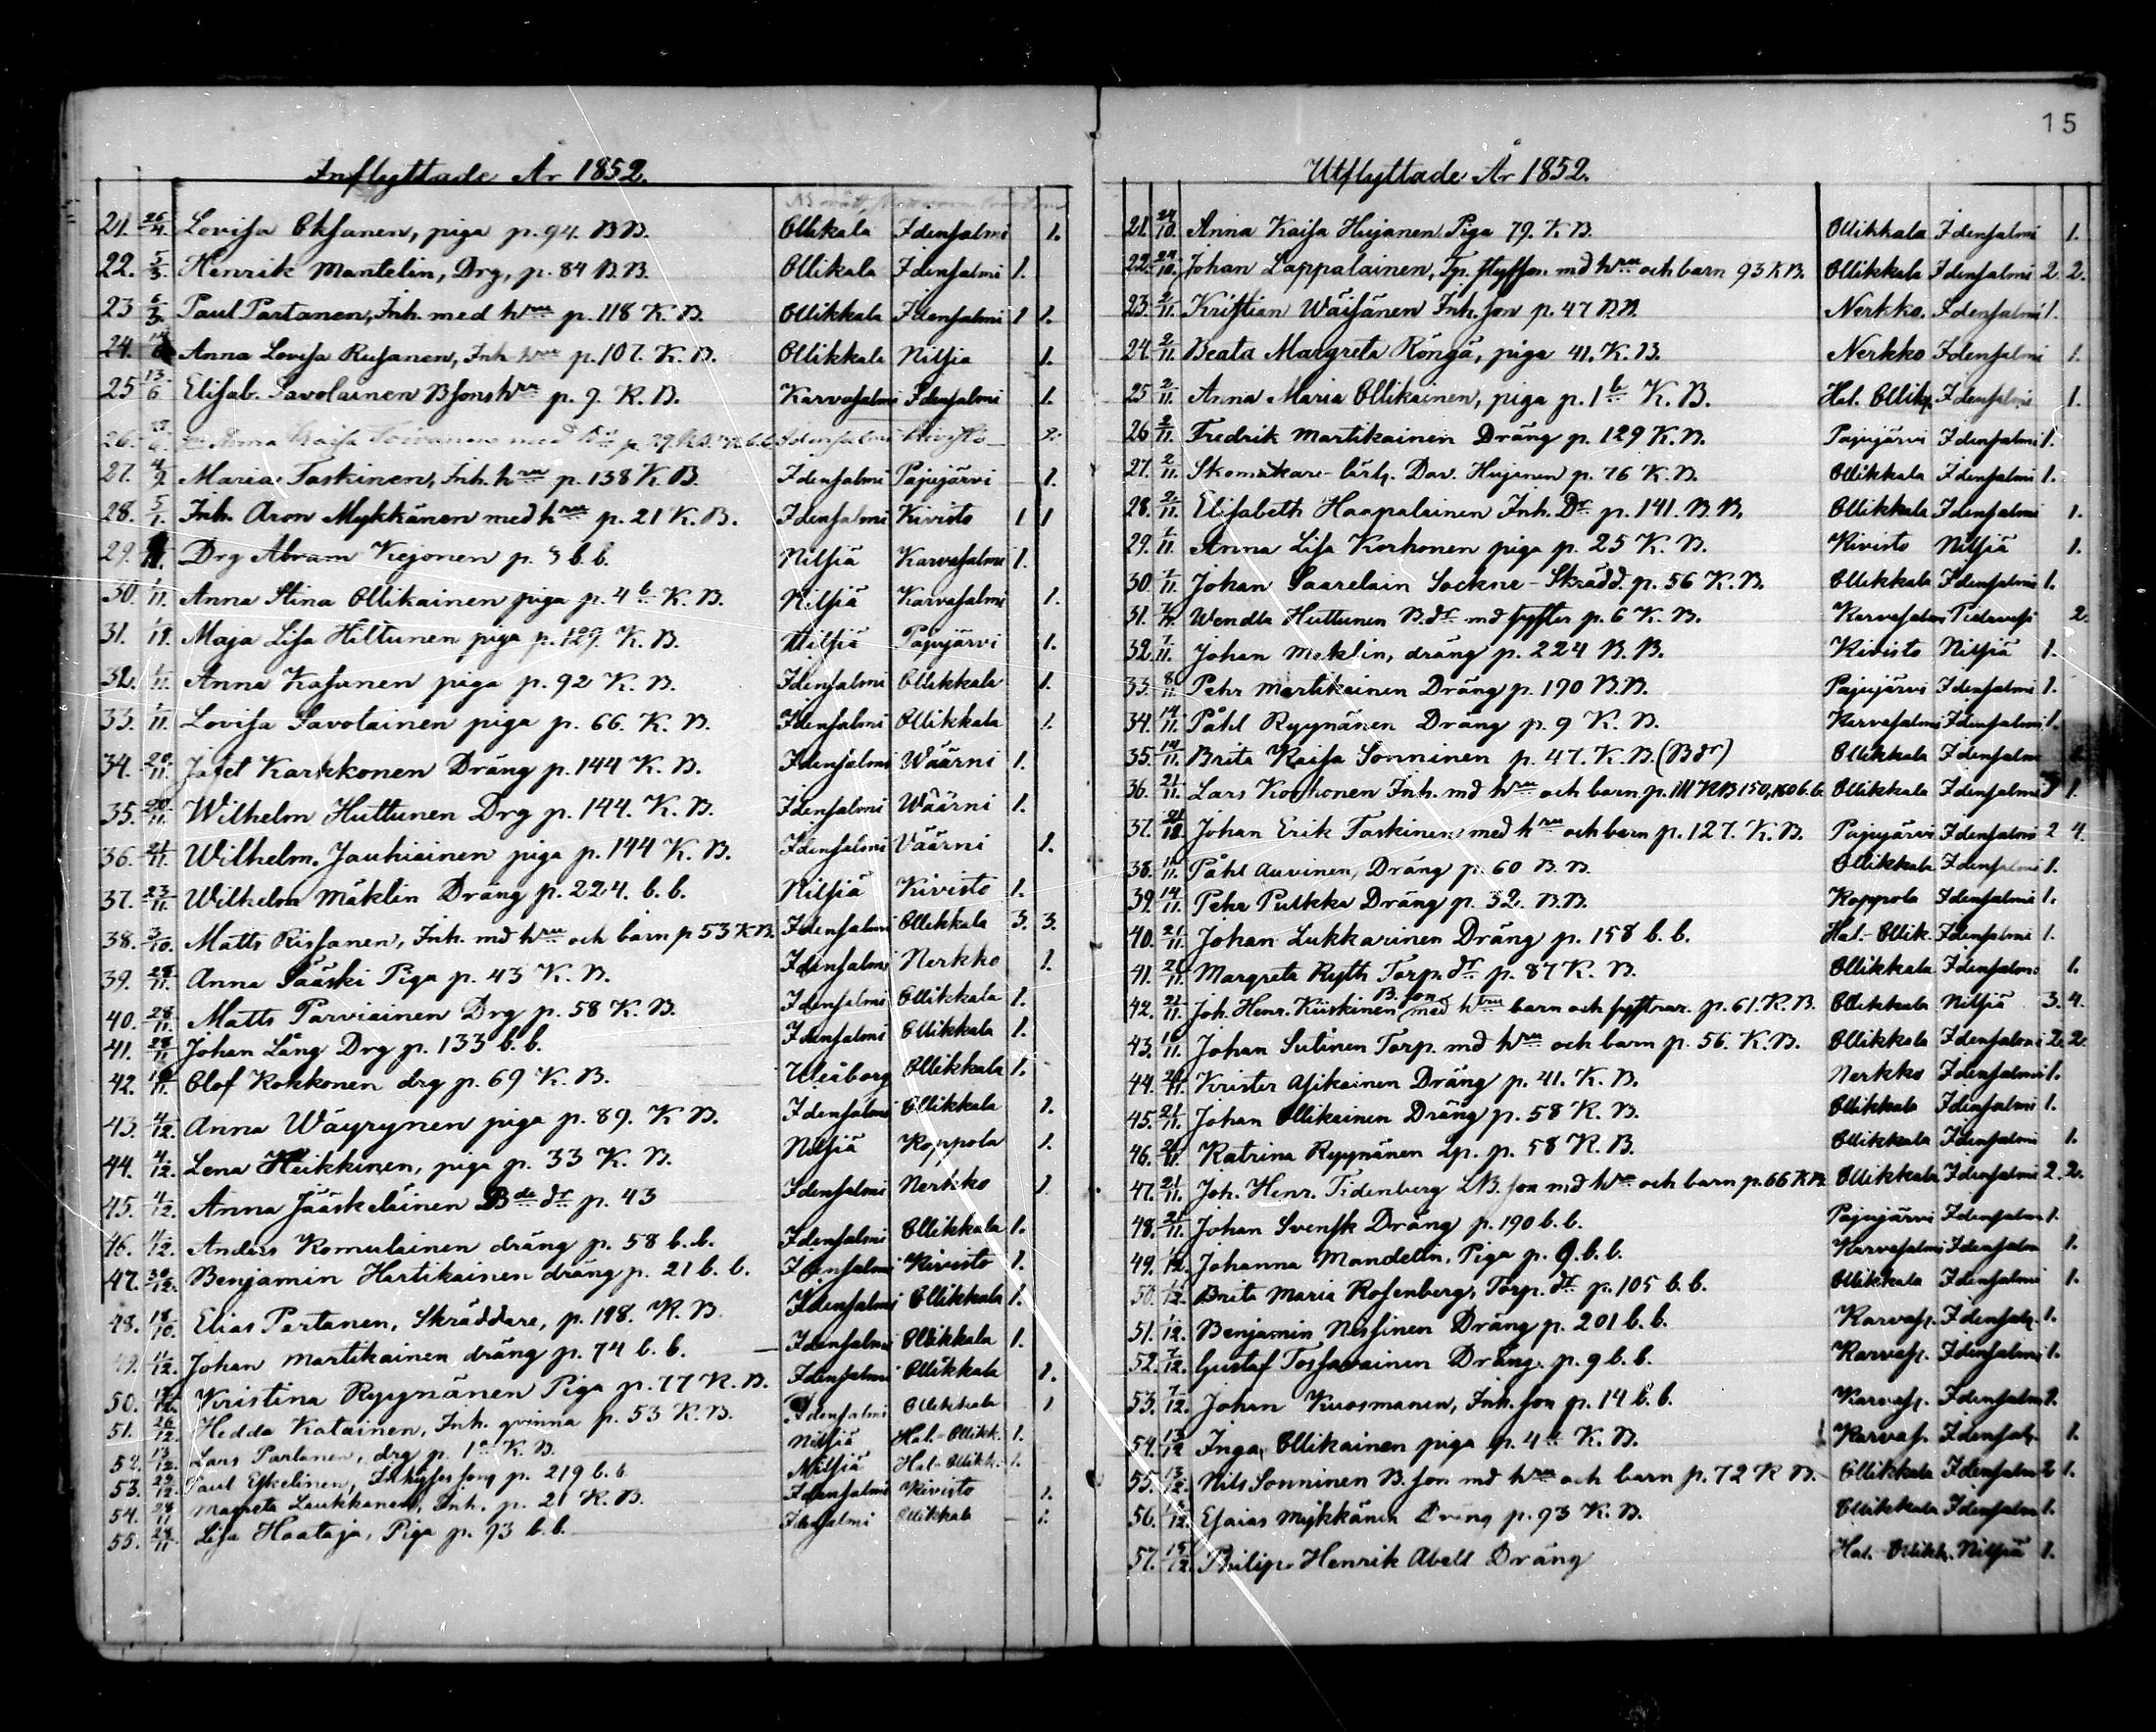 15
Inflyttade År 1852.
21. 26/4. Lovisa Oksanen, piga p. 94. B B. Ollikala Idensalmi 1.
22. 5/3. Henrik Mantelin, Drg, p. 84 B. B. Ollikala Idensalmi 1.
23 6/3. Paul Partanen, Inh. med hru p. 118 K. B. Ollikkala Idensalmi 1 1.
24. Anna Lovisa Rusanen, Inh hru p. 107. K. B. Ollikkala Nilsia 1.
25 13/6 Elisab. Savolainen Bsons hru p. 9. K. B. Karvasalmi Idensalmi 1.
26. Anna Kaisa Toivanen med p. 29 Idensalmi Kivisto 2.
27. 4/9. Maria Taskinen, Inh. hru p. 138 K. B. Idensalmi Pajujärvi 1.
28. 5/1. Inh. Aron Mykkänen med hru p. 21 K. B. Idensalmi Kivisto 1 1
29. Drg Abram Kejonen p. 3 b. b. Nilsiä Karvasalmi 1.
30. 1/11. Anna Stina Ollikainen piga p. 4 b K. B. Nilsiä Karvasalmi 1.
31. 1/11. Maja Lisa Hiltunen piga p. 129. K. B. Nilsiä Pajujärvi 1.
32. 1/11. Anna Kasanen piga p. 92 K. B. Idensalmi Ollikkala 1.
33. 1/11. Lovisa Savolainen piga p. 66. K. B. Idensalmi Ollikkala 1.
34. 20/11. Jafet Karkkonen Dräng p. 144 K. B. Idensalmi Wäärni 1.
35. 20/11. Wilhelm Huttunen Drg p. 144. K. B. Idensalmi Wäärni 1.
36. 21/11. Wilhelm. Jauhiainen piga p. 144 K. B. Idensalmi Väärni 1.
37. 23/11. Wilhelm Mäklin Dräng p. 224. b. b. Nilsiä Kivisto 1.
38. 3/10. Matts Rissanen, Inh. md hru och barn p 53 K B. Idensalmi Ollikkala 3. 3.
39. 28/11. Anna Sääski Piga p. 43 K. B. Idensalmi Nerkko 1.
40. 28/11. Matts Parviainen Drg p. 58 K. B. Idensalmi Ollikkala 1.
41. 28/11 Johan Lång Drg p. 133 b. b. Idensalmi Ollikkala 1.
42. Olof Kokkonen drg p. 69 K. B. Uleåborg Ollikkala 1.
43. 4/12. Anna Wäyrynen piga p. 89. K B. Idensalmi Ollikkala 1.
44. 4/12. Lena Heikkinen, piga p. 33 K. B. Nilsiä Koppola 1.
45. 4/12. Anna Jääskeläinen Bde dr p. 43 Idensalmi Nerkko 1.
46. 11/12. Anders Komulainen dräng p. 58 b. b. Idensalmi Ollikkala 1.
47. 30/12. Benjamin Hartikainen dräng p. 21 b. b. Idensalmi Kivisto 1.
48. 18/10. Elias Partanen, Skräddare, p. 198. K. B. Idensalmi Ollikkala 1.
49. 11/12. Johan Martikainen dräng p. 74 b. b. Idensalmi Ollikkala 1.
50. Kristina Ryynänen Piga p. 77 K. B. Idensalmi Ollikkala 1.
51. 26/12 Hedda Katainen, Inh. qvinna p. 53 K. B. Idensalmi Ollikkala 1
52. 13/12. Lars Partanen, drg p. 1 a K. B. Nilsiä Hal.-Ollikk. 1.
53. 29/12. Paul Eskelinen, Inhyses son p. 219 b. b. Nilsiä Hal-Ollikk. 1.
54. 28/11 Magreta Laukkanen, Inh. p. 21 K. B. Idensalmi Kivisto 1.
55. 28/11 Lisa Haataja, Piga p. 93 b. b. Idensalmi Ollikkala 1.
Utflyttade År 1852.
21. 24/10. Anna Kaisa Hujanen Piga 79. K B. Ollikkala Idensalmi 1.
22. 24/10. Johan Lappalainen, Tp. styfson md hru och barn 93 K B. Ollikkala Idensalmi 2. 2.
23. 2/11. Kristian Wäisänen Inh. son p. 47 B. B. Nerkko. Idensalmi 1.
24. 2/11. Beata Margreta Röngä, piga 41. K. B. Nerkko Idensalmi 1.
25 2/11. Anna Maria Ollikainen, piga p. 1 b K. B. Hal. Ollik. Idensalmi 1.
26 2/11. Fredrik Martikainen Dräng p. 129 K. B. Pajujärvi Idensalmi 1.
27. 2/11. Skomakare-lärl. Dav. Hujanen p. 76 K. B. Ollikkala Idensalmi 1.
28. 2/11. Elisabeth Haapalainen Inh. Dr p. 141. B. B. Ollikkala Idensalmi 1.
29. 7/11. Anna Lisa Korhonen piga p. 25 K. B. Kivisto Nilsiä 1.
30. 7/11. Johan Saarelain Sockne-Skrädd. p. 56 K. B. Ollikkala Idensalmi 1.
31. 7/11. Wendla Huttunen B. dr md syster p. 6 K. B. Karvasalmi Pidavesi 2.
32. 7/11. Johan Meklin, dräng p. 224 B. B. Kivisto Nilsiä 1.
33. 8/11. Pehr Martikainen Dräng p. 190 B. B. Pajujärvi Idensalmi 1.
34. 14/11. Påhl Ryynänen Dräng p. 9 K. B. Karvasalmi Idensalmi 1.
35. 14/11. Brita Kaisa Sonninen p. 47. K. B. (B dr) Ollikkala Idensalm
36. 21/11. Lars Korhonen Inh. md hru och barn p. 111 K B 150, 160 b. b. Ollikkala Idensalmi 1.
37. Johan Erik Taskinen med hru och barn p. 127. K. B. Pajujärvi Idensalmi 2 4.
38. 11/11. Påhl Auvinen, Dräng p. 60 B. B. Ollikkala Idensalmi 1.
39. 14/11. Pehr Pulkka Dräng p. 32. B. B. Koppola Idensalmi 1.
40. 21/11. Johan Lukkarinen Dräng p. 158 b. b. Hal.-Ollik. Idensalmi 1.
41. 21/11. Margreta Ryth Torp. dr p. 87 K. B. Ollikkala Idensalmi 1.
42. 21/11. Joh. Henr. Kiiskinen B. son med hru barn och systrar. p. 61. K. B. Ollikkala Nilsiä 3. 4.
43. 16/11. Johan Sutinen Torp. md hru och barn p. 56. K. B. Ollikkala Idensalmi 2. 2.
44. 21/11. Krister Asikainen Dräng p. 41. K. B. Nerkko Idensalmi 1.
45. 21/11. Johan Ollikainen Dräng p. 58 K. B. Ollikkala Idensalmi 1.
46. 21/11. Katrina Ryynänen Lp. p. 58 K. B. Ollikkala Idensalmi 1.
47. 21/11. Joh. Henr. Tidenberg LB. son md hru och barn p. 66 K B. Ollikkala Idensalmi 2. 2.
48. 21/11. Johan Svensk Dräng p. 190 b. b. Pajujärvi Idensalm 1.
49. 1/12. Johanna Mandelin, Piga p. 9. b. b. Karvasalmi Idensalm 1.
50. 1/12. Brita Maria Rosenberg, Torp. dr p. 105 b. b. Ollikkala Idensalmi 1.
51. 1/12. Benjamin Nissinen Dräng p. 201 b. b. Karvas. Idensal. 1.
52. 7/12. Gustaf Tossavainen Dräng p. 9 b. b. Karvas. Idensalmi 1.
53. 7/12. Johan Kuosmanen, Inh. son p. 14 b. b. Karvas. Idensalm 1.
54. 13/12 Inga Ollikainen piga p. 4 K. B. Karvas. Idensal. 1.
55. 13/12. Nils Sonninen B. son md hru och barn p. 72 K B. Ollikkala Idensalm 2 1.
56. Esaias Mykkänen Dräng p. 93 K. B. Ollikkala Idensalmi 1.
57. 19/12. Philip Henrik Abell Dräng Hal. Ollikk. Nilsiä 1.